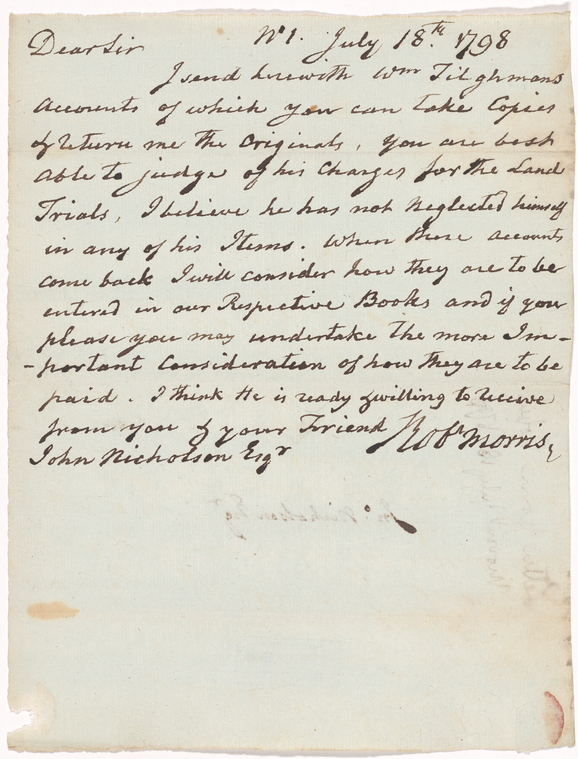 Dear Sir No 1. July 18th. 1798
I send herewith Wm Tilghmans
Accounts of which you can take Copies
& return me the Originals, you are best
able to judge of his Charges for the Land
Trials, I believe he has not Neglected himself
in any of his Items. When these accounts
come back I will consider how they are to be
entered in our Respective Books and if you
please you may undertake the more Im-
-portant Consideration of how they are to be
paid. I think He is ready & willing to receive
from you & your Friend Robt Morris
John Nicholson Esqr
Jno. Nicholson Esqr